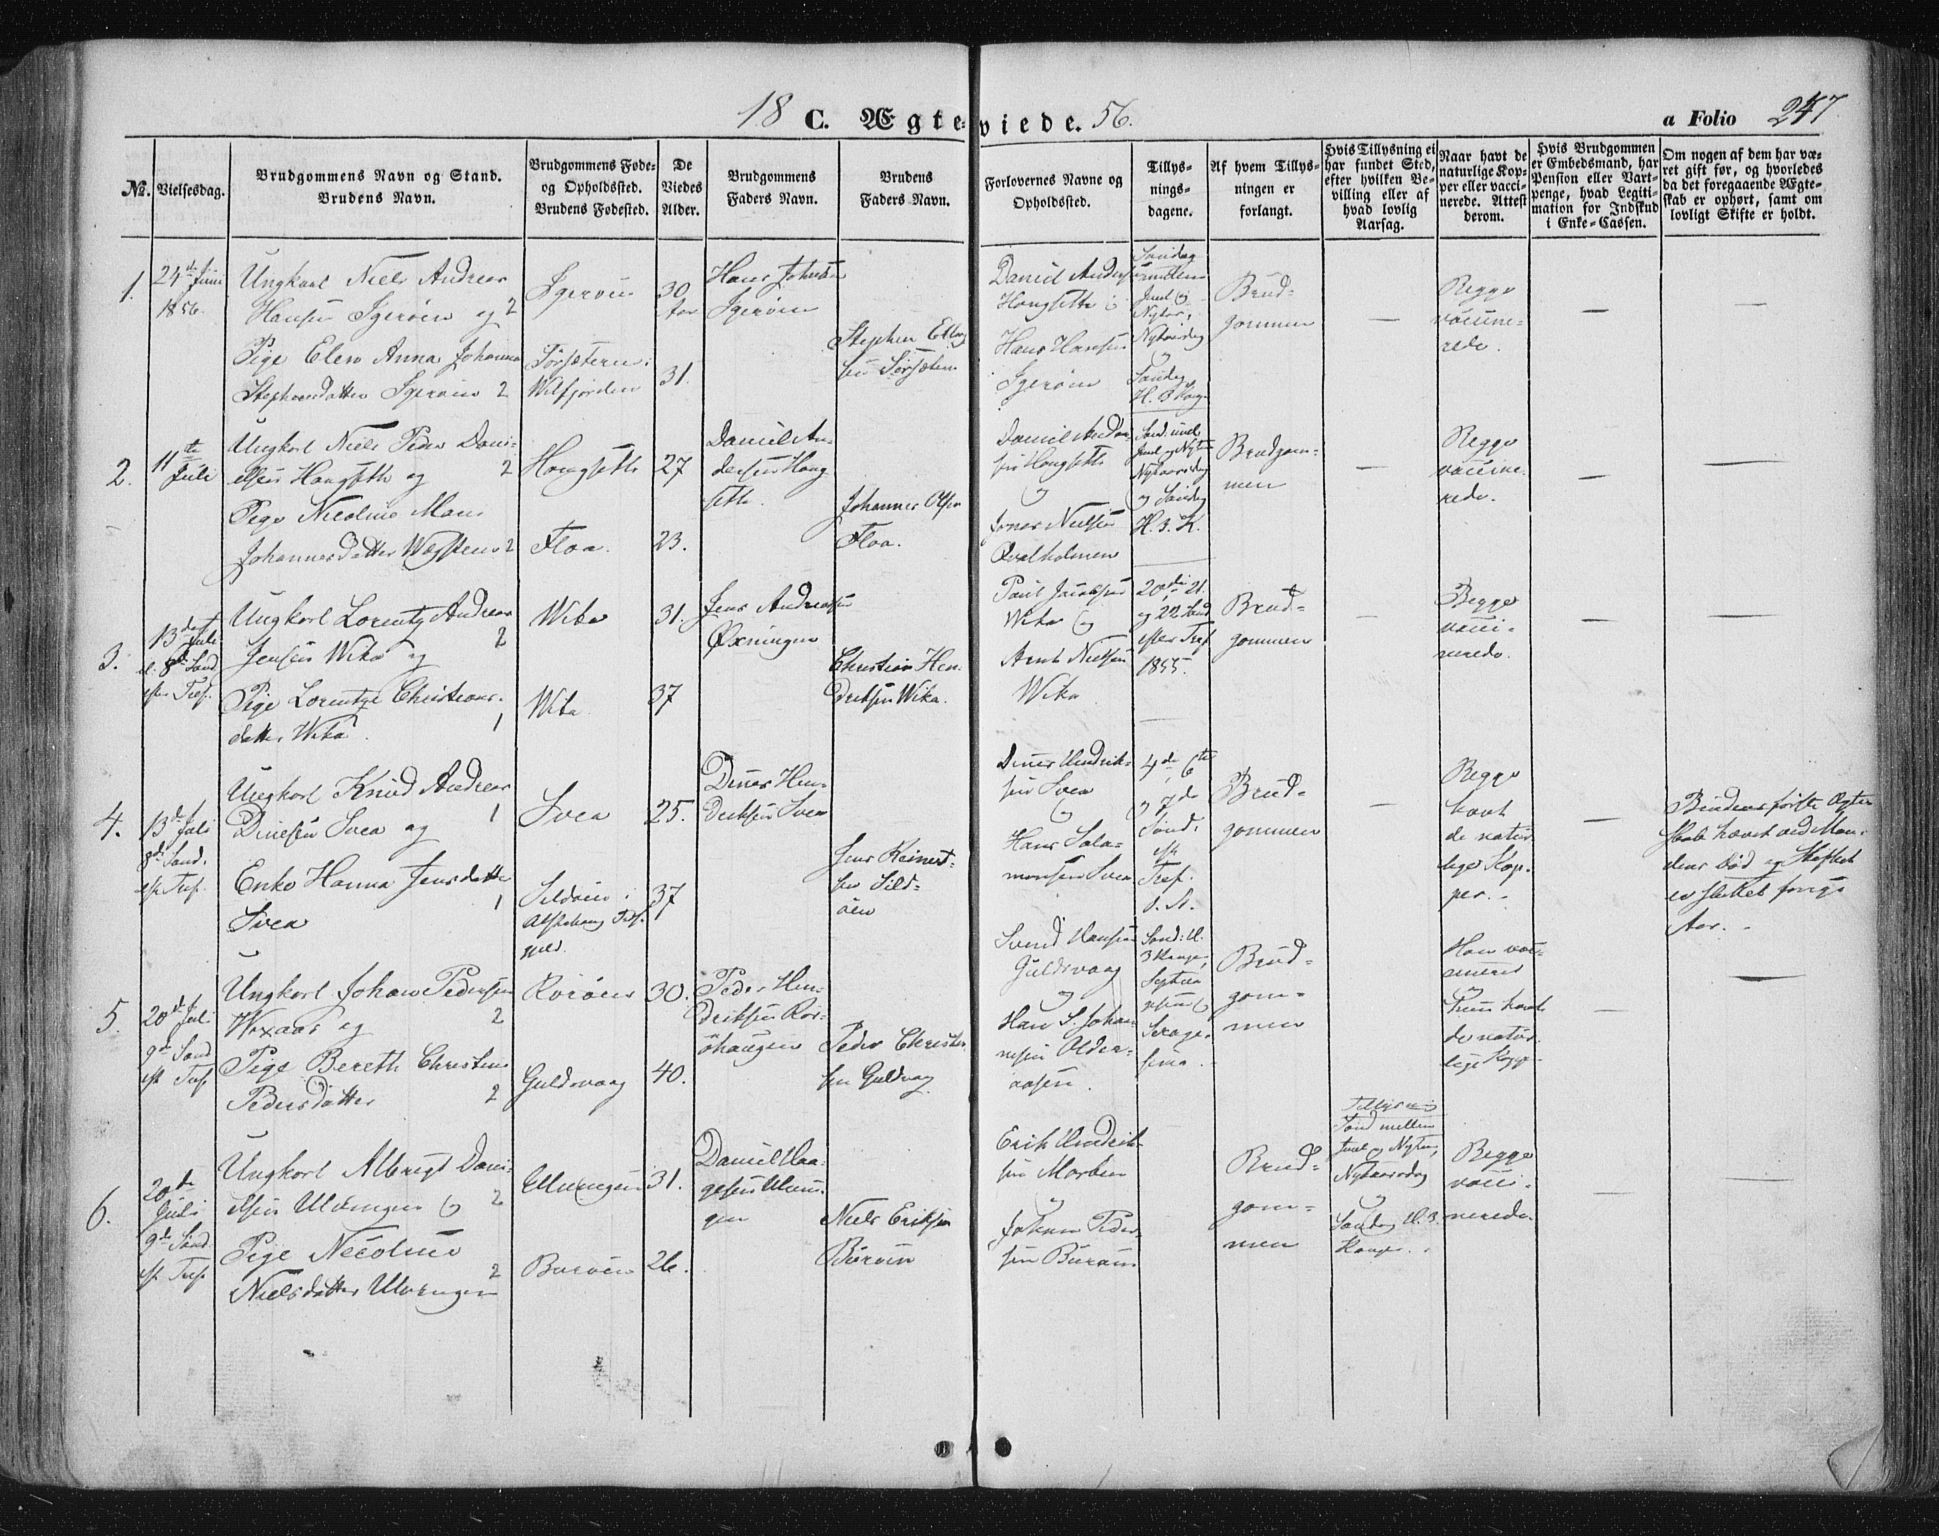 18 C. Ægteviede. 56. a Folio 247.
No.
Vielsesdag.
Brudgommens Navn og Stand.
Brudens Navn.
Brudgommens Føde-
og Opholdssted.
Brudens Fødested.
De
Viedes
Alder.
Brudgommens
Faders Navn.
Brudens
Faders Navn.
Forlovernes Navne og
Opholdssted.
Tillys-
nings-
dagene.
Af hvem Tillys-
ningen er
forlangt.
Hvis Tillysning ei
har fundet Sted,
efter hvilken Be-
villing eller af
hvad lovlig
Aarsag.
Naar havt de
naturlige Kop-
per eller vacci-
nerede. Attest
derom.
Hvis Brudgommen
er Embedsmand, har
Pension eller Vart-
penge, hvad Legiti-
mation for Indskud
i Enke-Cassen.
Om nogen af dem har væ-
ret gift før, og hvorledes
da det foregaaende Ægte-
skab er ophørt, samt om
lovligt Skifte er holdt.
1.
24de Juni
1856.
Ungkarl Niels Andreas
Hansen Igerøen og 2
Pige Elen Anna Johanna
Stephensdatter Igerøen 2
Igerøen
Sørsæteren i
Welfjorden
30
Aar
31.
Hans Johnsen
Igerøen
Stephen
sen Sørsæteren
Daniel Anders
Hongseth
Hans Hansen
Igerøen
Søndag
mellem
Juul og
Nytar,
Nytaarsdag
og
Søndag
H. 3 Kong
Brud-
gommen
Begge
vaccine-
rede.
2.
11te
Juli
Ungkarl Niels Peder Dani-
elsen Hongseth og 2
Pige Nicoline Marie
Johannesdatter 2
Hongseth
Floa.
27
23.
Daniel An-
dersen Hong
seth.
Johannes Olsen
Floa.
Daniel Ander
sen Hongseth
og
Jonas Nielsen
Qvalholmen
Sønd. mel.
Juul og Nytar
Nytaarsdag
og Søndag
H. 3. K.
Brudgom-
men
Begge
vaccine-
rede.
3.
13de Juli
8de Sønd
eft. Tref.
Ungkarl Lorentz Andreas
Jensen Wika og 2
Pige Lorentze Christians-
datter Wika. 1
Wika
Wika
31.
37
Jens Andreasen
Øxningen
Christian Hen-
driksen Wika.
Paul Jacobsen
Wika og
Arnt Nielsen
Wika
20de, 21.
og 22 Sønd
efter Tref.
1855.
Brud-
gommen
Begge
vacci-
nerede.
4.
13de Juli
8de Sønd.
eft. Tref.
Ungkarl Knud Andreas
Dinesen Svea og 1
Enke Hanna Jensdatter
Svea 1
Svea
Sildøen i
Alstahoug Præst-
gjeld.
25.
37
Dines Hen-
driksen Svea
Jens Reinert-
sen Sild-
øen
Dines Hendrik-
sen Svea
og
Hans Sala-
monsen Svea
4de, 6te
og 7de
Sønd.
eft
Tref.
d. A.
Brud-
gommen
Begge
havt
de natur
lige Kop-
per.
Brudens første Ægte
skab hævet ved Man-
dens Død og Skiftet
er sluttet forrige
Aar.
5.
20de Juli
9de Sønd
eft Tref
Ungkarl Johan Pedersen
Woxaas og 2
Pige Bereth Christine
Pedersdatter 2
Rorøen
Guldsvaag
30.
40.
Peder Hen-
driksen Ror-
øhaugen
Peder Christen
sen Guldvag
Svend Hansen
Guldsvaag
og
Hans S. Johan-
nesen Older-
aasen.
Sønd: H.
3 Konger,
Septua
gesima og
Sexage-
sima.
Brud-
gom-
men
Han vac-
cineret
og
hun havt
de natur-
lige Kopp-
6.
20de
Juli
9de Sønd
eft Tref
Ungkarl Albrigt Dani-
elsen Ulvingen og 2
Pige Nicoline
Nielsdatter Ulvingen 2
Ulvingen
Burøen
31.
26.
Daniel Haa-
gensen Ulvin-
gen
Niels Eriksen
Burøen
Erik Hendrik-
sen Morken
og
Johan Peder-
sen Burøen
Brud-
gom-
men
Tillyst
Sønd mellem
Juul og Nytar,
Nytaarsdag
og
Søndag H. 3.
Konger.
Begge
vacci-
nerede.